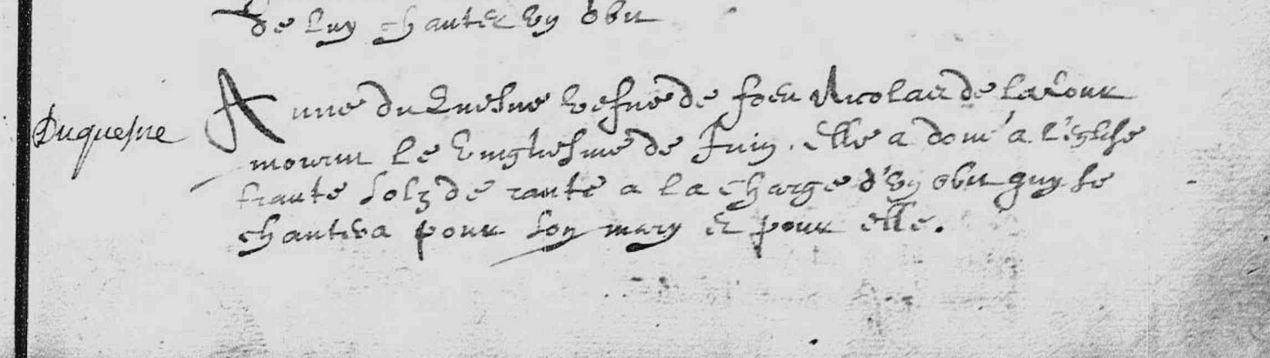 de luy chanter un obit
Duquesne
Anne du Quesne vefve de feu Nicolas de la Cour
mourut le vingtiesme de Juin. Elle a donné a l'église
trante solz de rante a la charge d'un obit quy se
chantera pour son mary et pour elle.